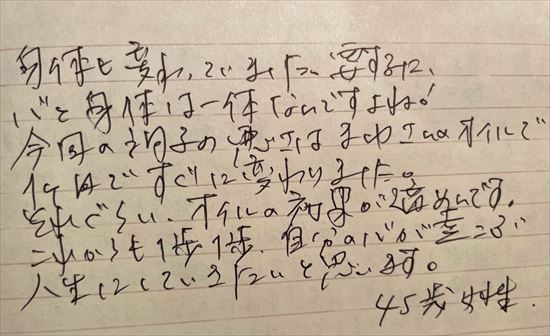 身体も変わっていきました。要するに、
心と身体は一体なんですよね!
今回の調子の悪さはまわエwオイルで
1ヶ月ですぐに変わりました。
それぐらい、オイルの効果が適めんです。
これからも1歩1歩、自分の心が喜こぶ
人生にしていきたいと思います。
45歳 女性.